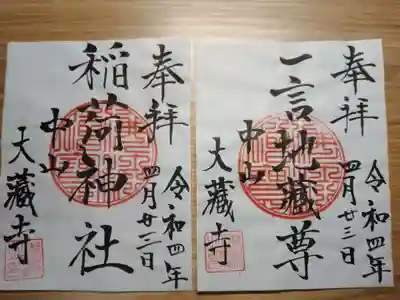 奉拝
令和四年
四月廿三日
一言地蔵尊
中山
大蔵寺
奉拝
令和四年
四月廿三日
稲荷神社
中山
大蔵寺